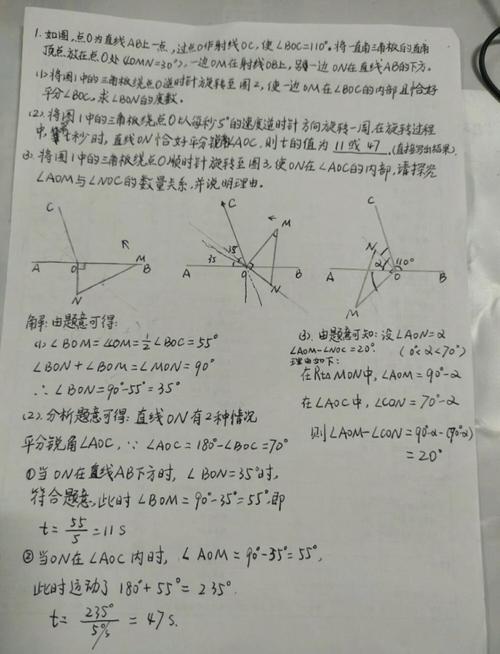 1. 如图,点O为直线AB上一点,过点O作射线OC,使∠BOC=110°。将一直角三角板的直角
顶点放在点O处(∠OMN=30°),一边OM在射线OB上,另一边ON在直线AB的下方。
(1) 将图1中的三角板绕点O逆时针方旋转至图2,使一边OM在∠BOC的内部且恰好
平分∠BOC,求∠BON的度数。
(2). 将图1中的三角板绕点O以每秒5°的速度逆时针方向旋转一周,在旋转过程
中,第t秒时,直线ON恰好平分锐角∠AOC,则t的值为 11或47 (直接写出结果)
(3) 将图1中的三角板绕点O顺时针旋转至图3,使ON在∠AOC的内部,请探究
∠AOM与∠NOC的数量关系,并说明理由。
C
A O M B
N
C
M
35
35
A O B
N
C
N
α 110°
A O B
M
解:由题意可得:
(1) ∠BOM=∠COM=1/2∠BOC=55°
∠BON+∠BOM=∠MON=90°
∴∠BON=90°-55°=35°
(2). 分析题意可得:直线ON有2种情况
平分锐角∠AOC, ∵∠AOC=180°-∠BOC=70°
①当ON在直线AB下方时,∠BON=35°时,
符合题意,此时∠BOM=90°-35°=55°,即
t=55/5=11s
②当ON在∠AOC内时,∠AOM=90°-35°=55°,
此时运动了180°+55°=235°.
t=235°/5°/s=47s.
(3). 由题意可知:设∠AON=α
∠AOM-∠NOC=20°. (0°<α<70°)
理由如下:
在Rt△MON中,∠AOM=90°-α
在∠AOC中,∠CON=70°-α
则∠AOM-∠CON=90°-α-(70°-α)
=20°